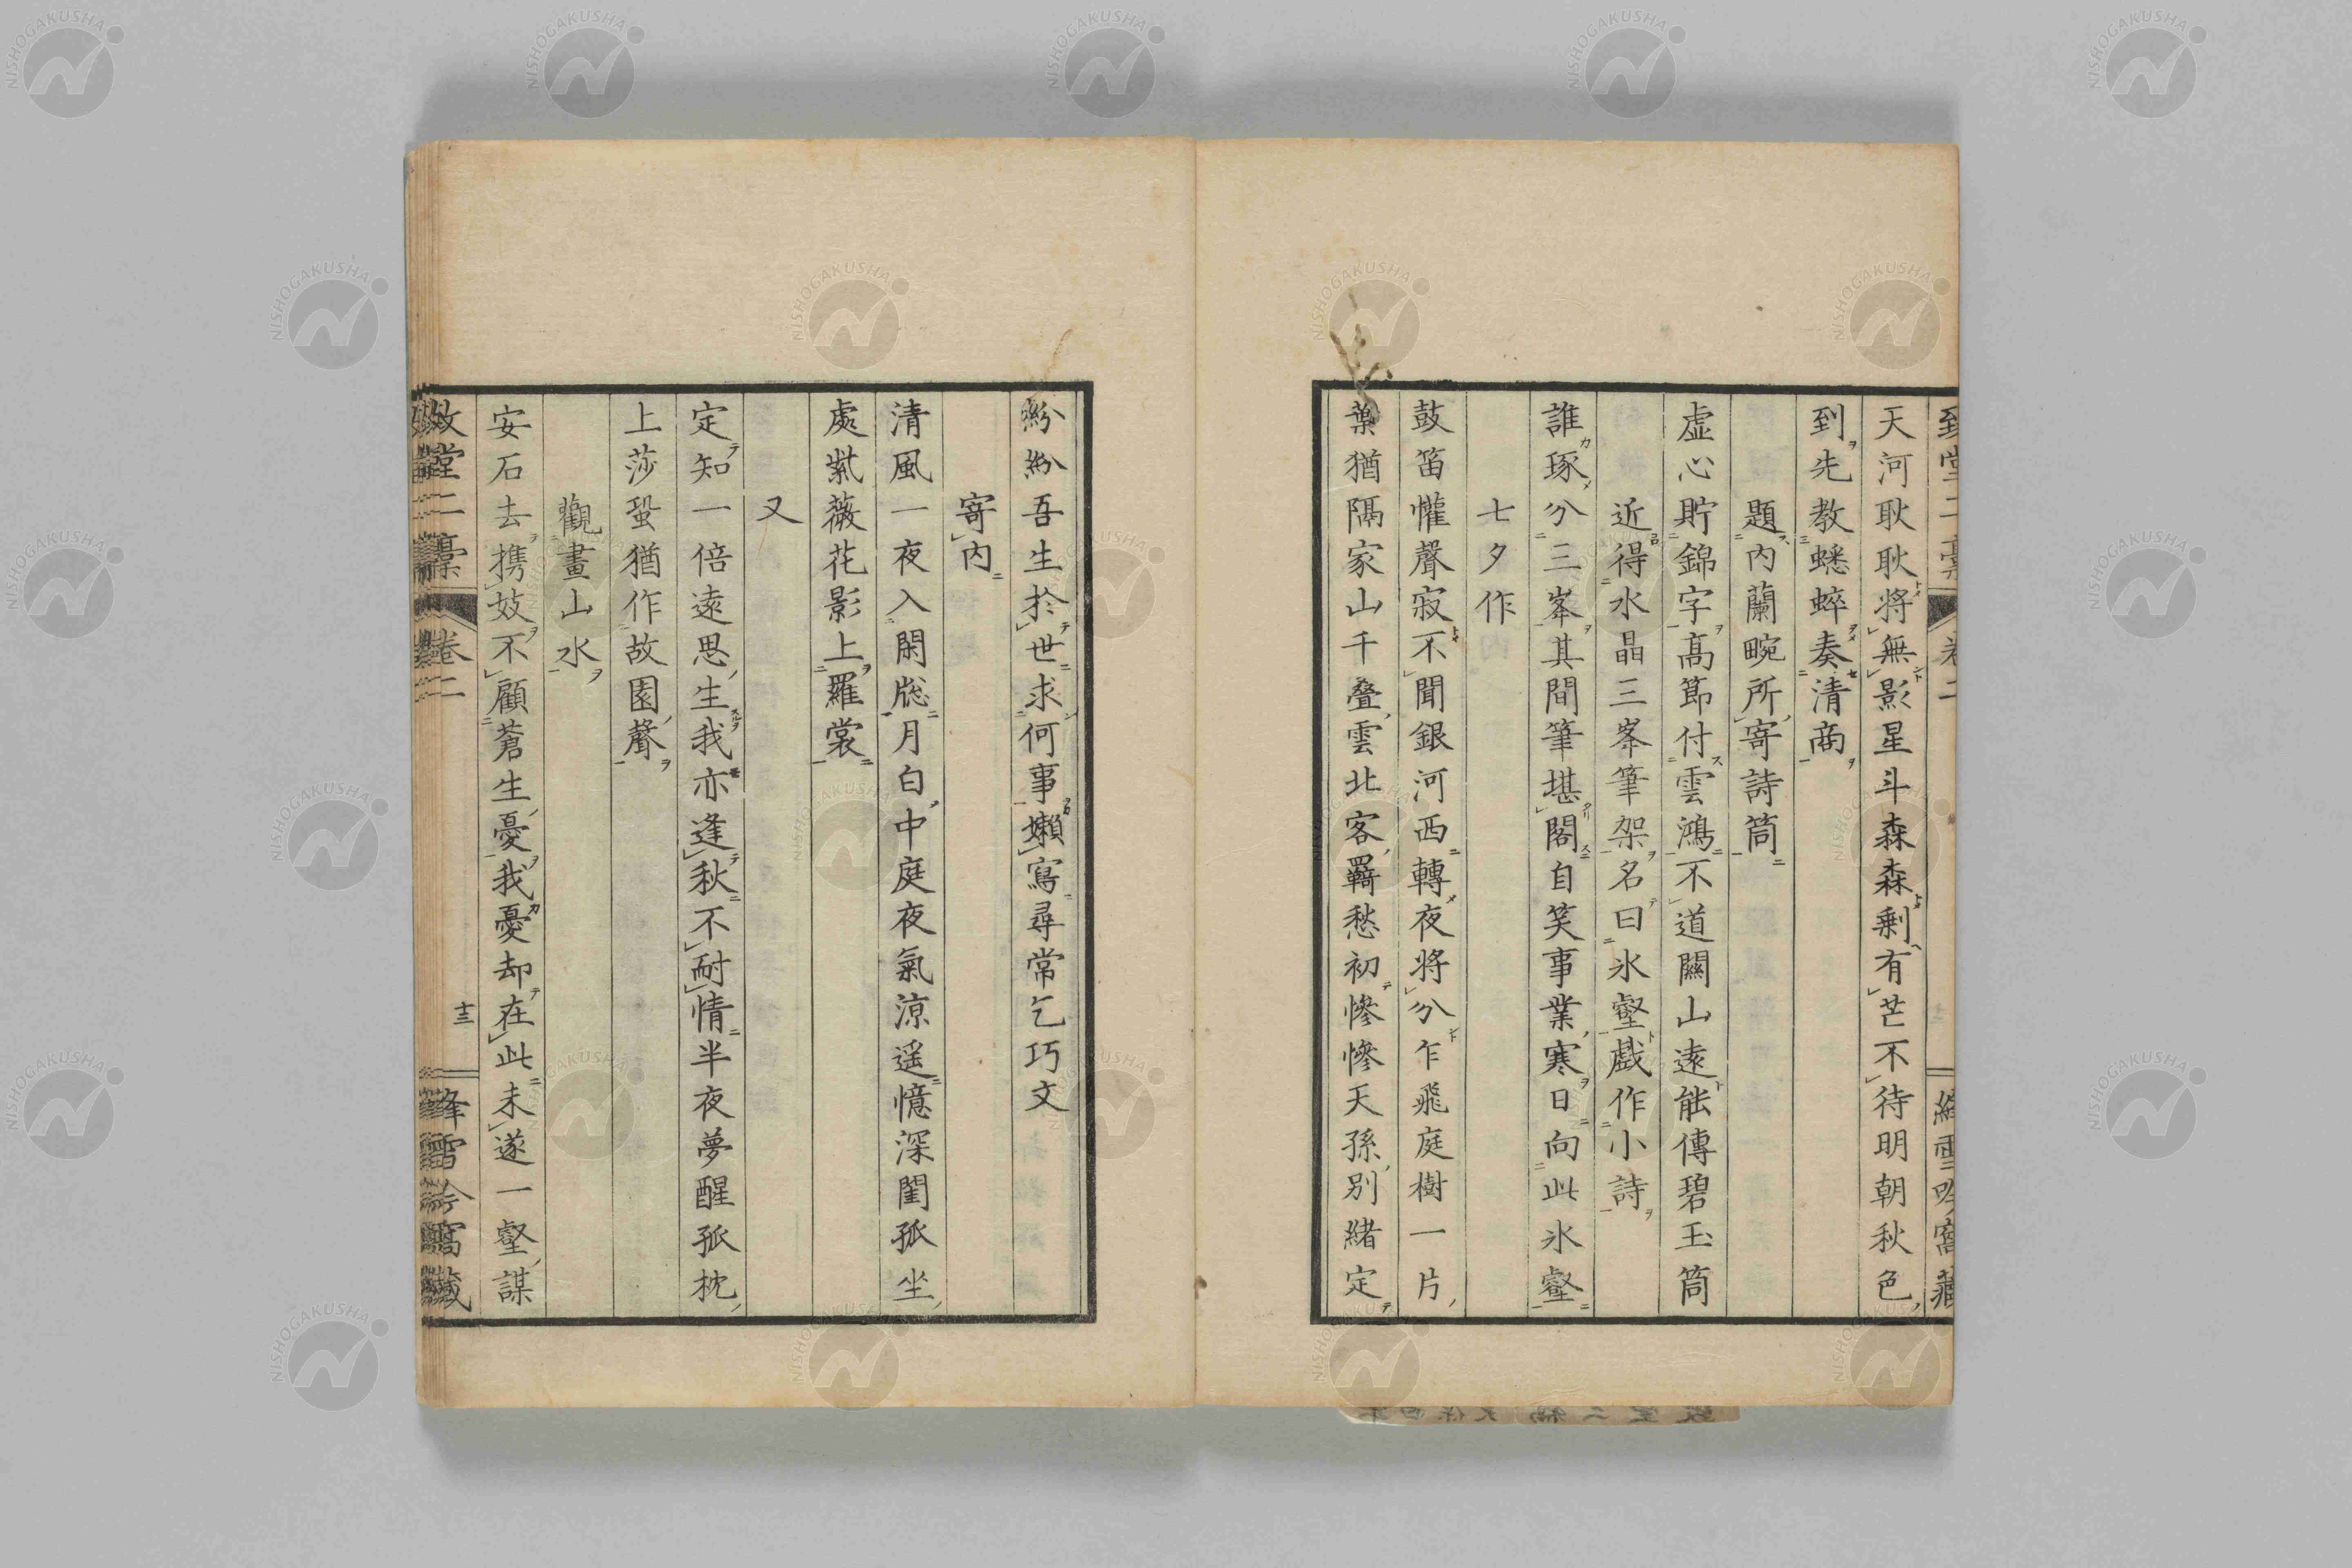 天河耿耿將無影星斗森森剩有芒不待明朝秋色
到先教蟋蟀奏清商
題内蘭畹所寄詩筒
虚心貯錦字高節付雲鴻不道關山遠能傳碧玉筒
近得水晶三峯筆架名曰氷壑戲作小詩
誰琢分三峯其間筆堪閣自笑事業寒日向此氷壑
七夕作
鼓笛懽聲寂不聞銀河西轉夜將分乍飛庭樹一片
葉猶隔家山千疊雲北客羈愁初慘慘天孫別緒定
紛紛吾生於世求何事嬾寫尋常乞巧文
寄内
清風一夜入閑牕月白中庭夜氣涼遥憶深閨孤坐
處紫薇花影上羅裳
又
定知一倍遠思生我亦逢秋不耐情半夜夢醒孤枕
上莎蛩猶作故園聲
觀畫山水
安石去携妓不顧蒼生憂我憂却在此未遂一壑謀
致堂二稾 卷二 十三 絳雪吟窩藏
NISHOGAKUSHA